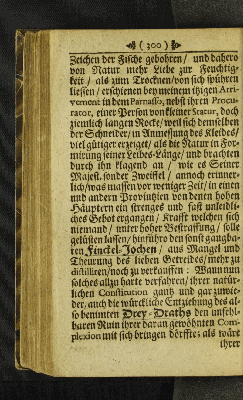 ( 300 )
Zeichen der Fische gebohren / und dahero
von Natur mehr Liebe zur Feuchtig-
keit / als zum Trocknen / von sich spühren
liessen / erschienen bey meinem itzigen Arri-
vement in dem Parnasso, nebst ihren Procu-
rator, einer Person von kleiner Statur, doch
ziemlich langen Rocke / weil sich demselben
der Schneider / in Anmessung des Kleides /
viel gütiger erzeiget / als die Natur in For-
mirung seiner Leibes-Länge / und brachten
durch ihn klagend an / wie es Seiner
Majest. sonder Zweiffel / annoch erinner-
lich / was massen vor weniger Zeit / in einen
und andern Provintzien von denen hohen
Häuptern ein strenges und fast unleidli-
ches Gebot ergangen / Krafft welchen sich
niemand / unter hoher Bestraffung / solle
gelüsten lassen / hinführo den sonst gangba-
ren Finckel-Jochen / aus Mangel und
Theurung des lieben Getreides / mehr zu
distilliren / noch zu verkauffen : Wann nun
solches allzu harte verfahren / ihrer natür-
lichen Constitution gantz und gar zuwie-
der, auch die würckliche Entziehung des al-
so benimten Drey-Draths den unfehl-
baren Ruin ihrer daran gewöhnten Com-
plexion mit sich bringen dörffte ; als wärt
ihrer